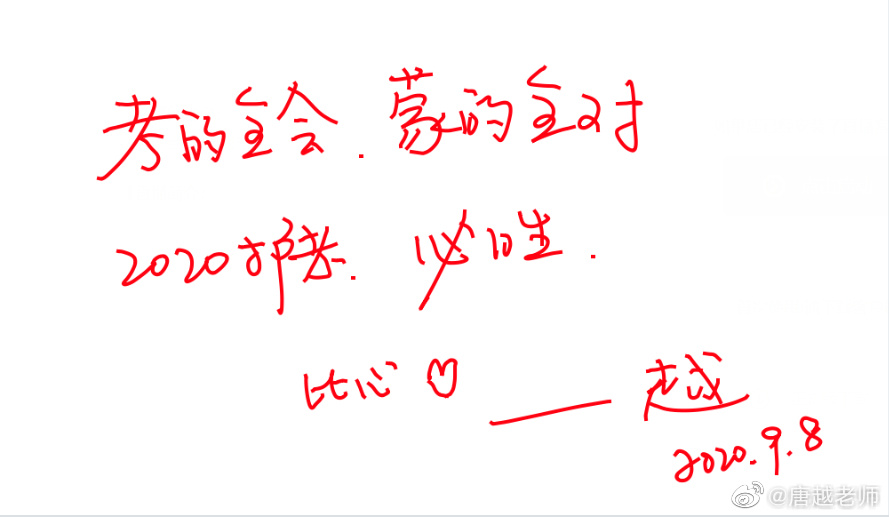 考的全会.蒙的全对
2020护考.必胜.
比心♡——越
2020.9.8
@唐越老师